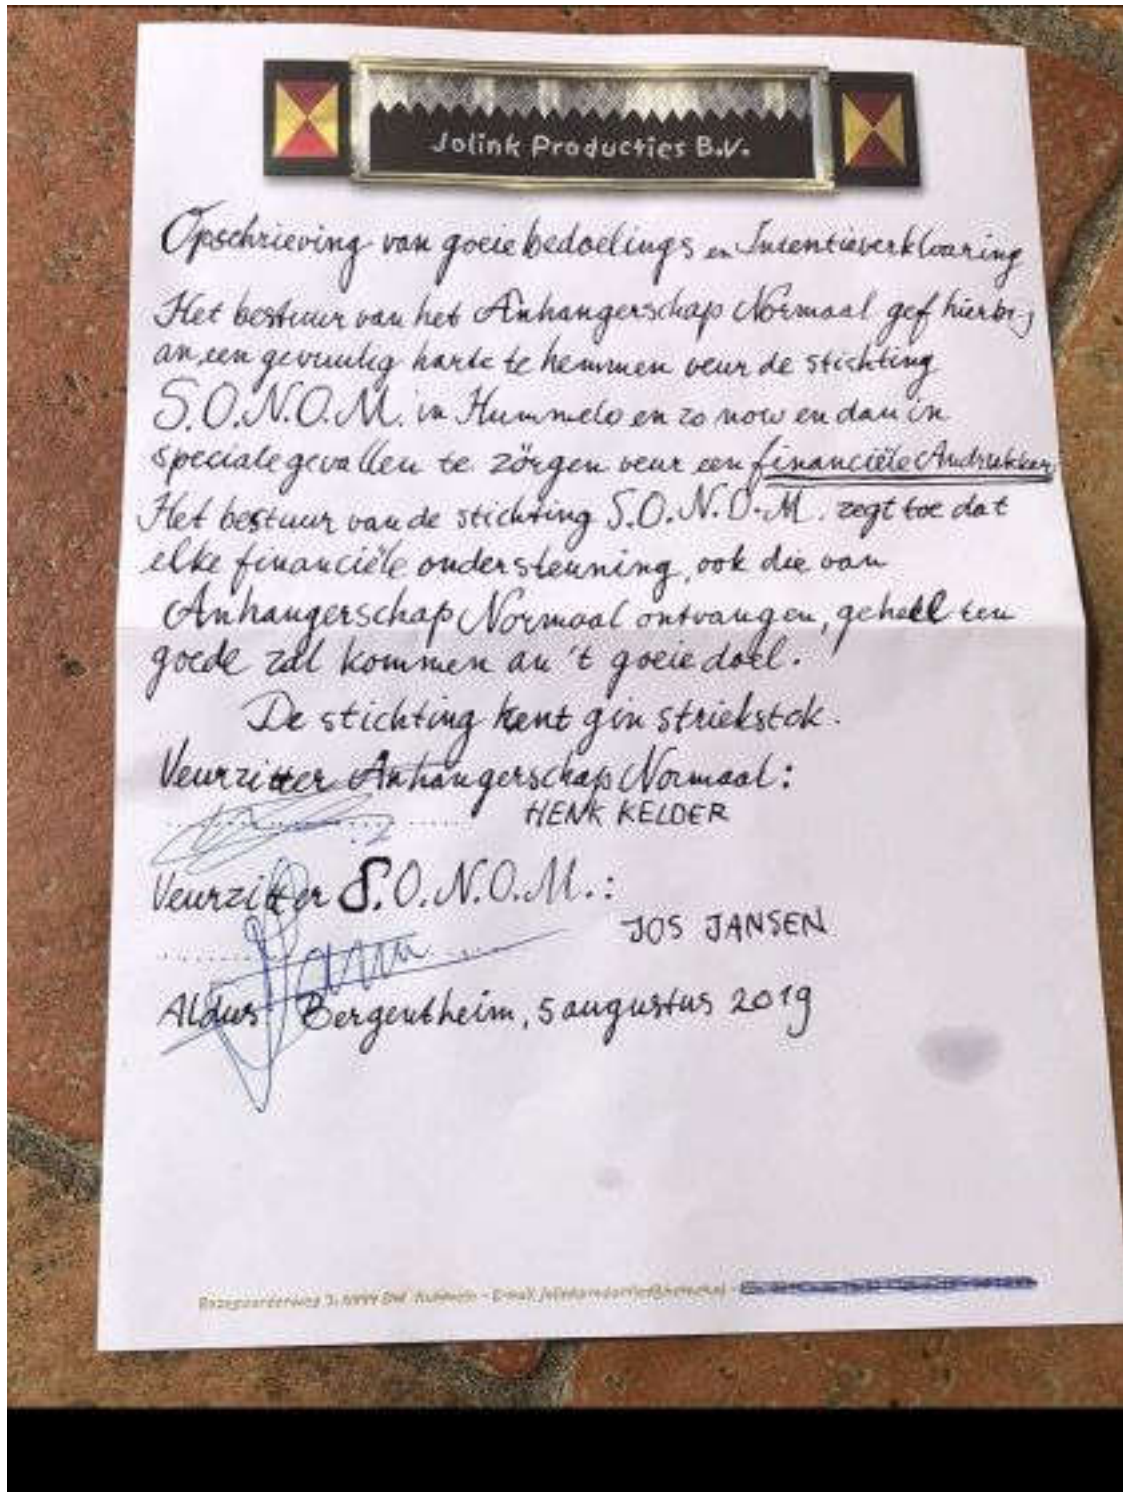 Jolink Producties B.V.
Opschrieving van goeie bedoelings en Intentieverkloaring
Het bestuur van het Anhangerschap Normaal gef hierbij
an, een gevuulig harte te hemmen veur de stichting
S.O.N.O.M. in Hummelo en zo now en dan in
speciale gevallen te zörgen veur een financiële Andrukker
Het bestuur van de stichting S.O.N.O.M. zegt toe dat
elke financiële ondersteuning, ook die van
Anhangerschap Normaal ontvangen, geheel ten
goede zal kommen an 't goeie doel.
De stichting kent gin striekstok.
Veurzitter Anhangerschap Normaal:
HENK KELDER
Veurzitter S.O.N.O.M.:
JOS JANSEN
Aldus Bergentheim, 5 augustus 2019
Hummelo - E-mail